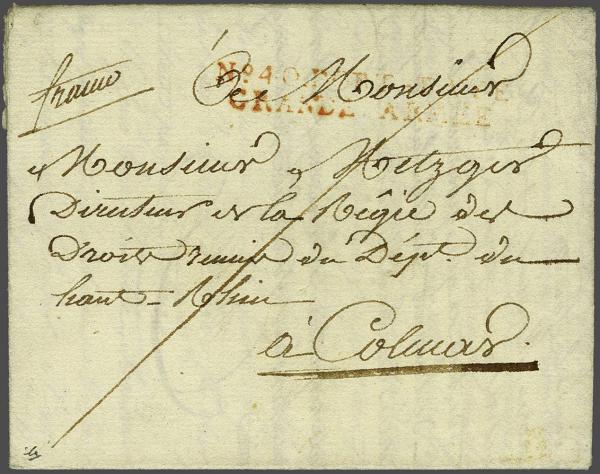 franco
A Monsieur
No. 40 PORT PAYÉ
GRANDE ARMÉE
Monsieur Metzger
Directeur de la Régie des
Droits réunis du Dépt. du
haut-Rhin
à Colmar.